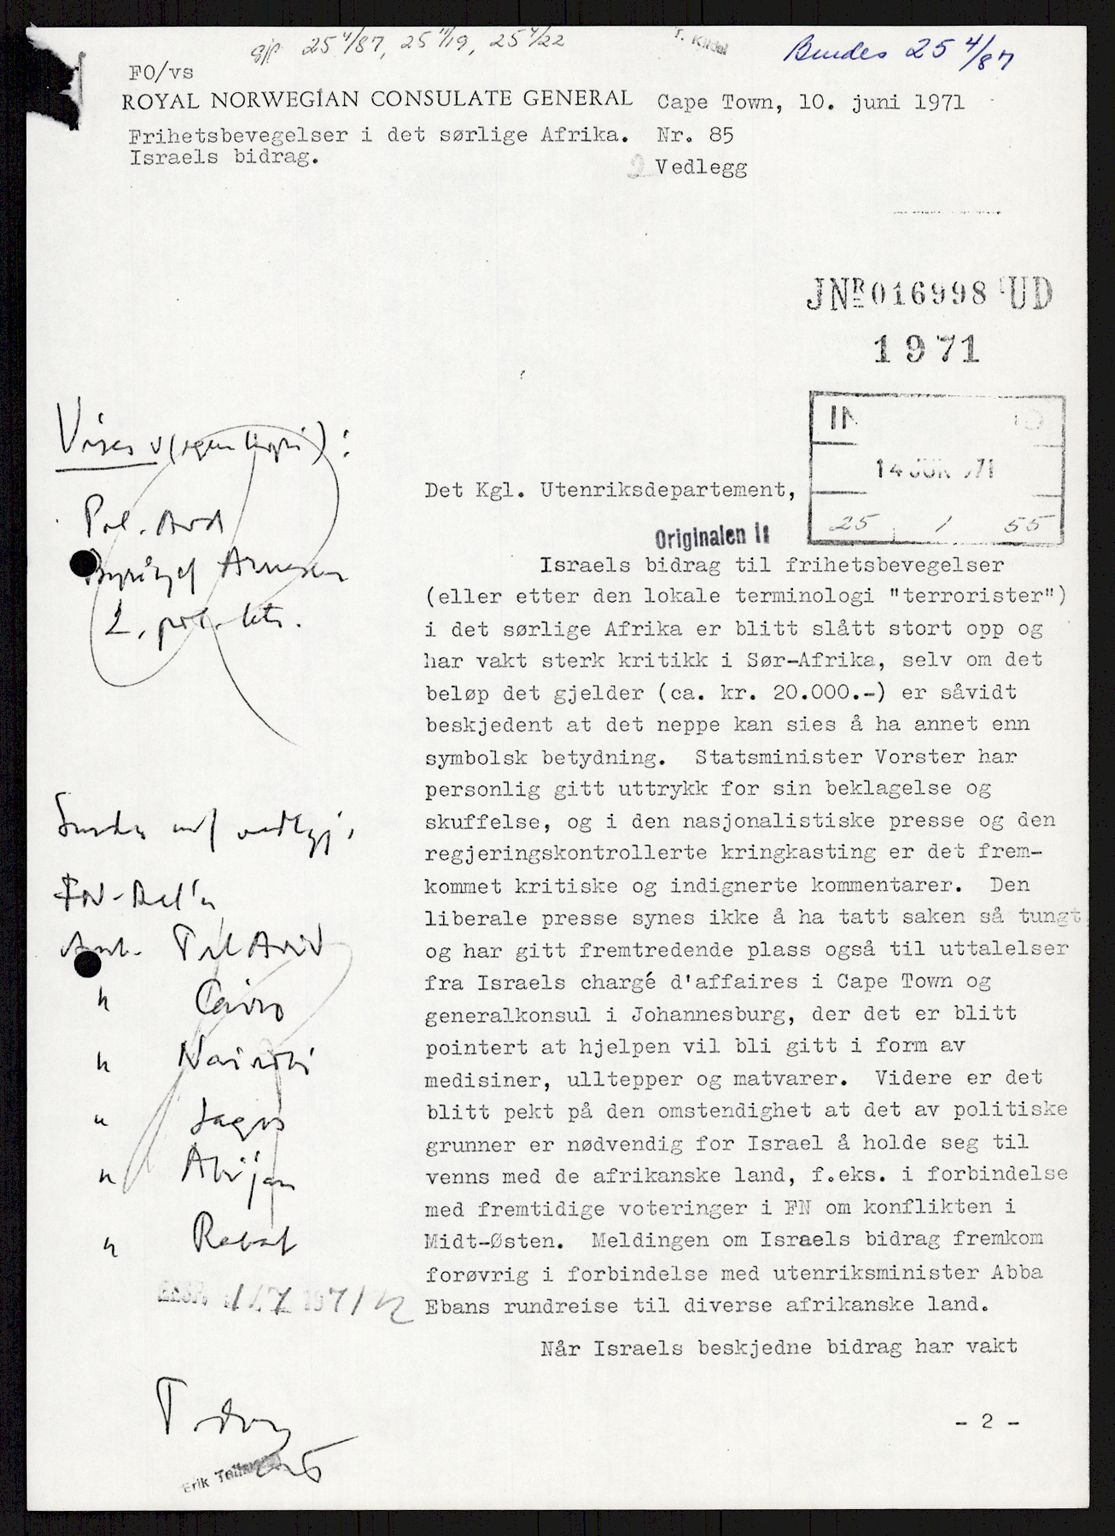 25 4/87, 25 11/19, 25 4/22
25 4/87
FO/vs
ROYAL NORWEGIAN CONSULATE GENERAL
Cape Town, 10. juni 1971
Frihetsbevegelser i det sørlige Afrika.
Nr. 85
Israels bidrag.
2 Vedlegg
JNR 016998 UD
1971
14 JUN 71
25 1 55
Det Kgl. Utenriksdepartement,
Originalen i:
Israels bidrag til frihetsbevegelser
(eller etter den lokale terminologi "terrorister")
i det sørlige Afrika er blitt slått stort opp og
har vakt sterk kritikk i Sør-Afrika, selv om det
beløp det gjelder (ca. kr. 20.000.-) er såvidt
beskjedent at det neppe kan sies å ha annet enn
symbolsk betydning. Statsminister Vorster har
personlig gitt uttrykk for sin beklagelse og
skuffelse, og i den nasjonalistiske presse og den
regjeringskontrollerte kringkasting er det frem-
kommet kritiske og indignerte kommentarer. Den
liberale presse synes ikke å ha tatt saken så tungt
og har gitt fremtredende plass også til uttalelser
fra Israels chargé d'affaires i Cape Town og
generalkonsul i Johannesburg, der det er blitt
pointert at hjelpen vil bli gitt i form av
medisiner, ulltepper og matvarer. Videre er det
blitt pekt på den omstendighet at det av politiske
grunner er nødvendig for Israel å holde seg til
venns med de afrikanske land, f.eks. i forbindelse
med fremtidige voteringer i FN om konflikten i
Midt-Østen. Meldingen om Israels bidrag fremkom
forøvrig i forbindelse med utenriksminister Abba
Ebans rundreise til diverse afrikanske land.
Når Israels beskjedne bidrag har vakt
- 2 -
Pol. Avd
Arnesen
2. pol. ktr.
FN-Del'n
Amb. Tel Aviv
" Cairo
" Nairobi
" Lagos
" Abijan
" Rabat
Erik